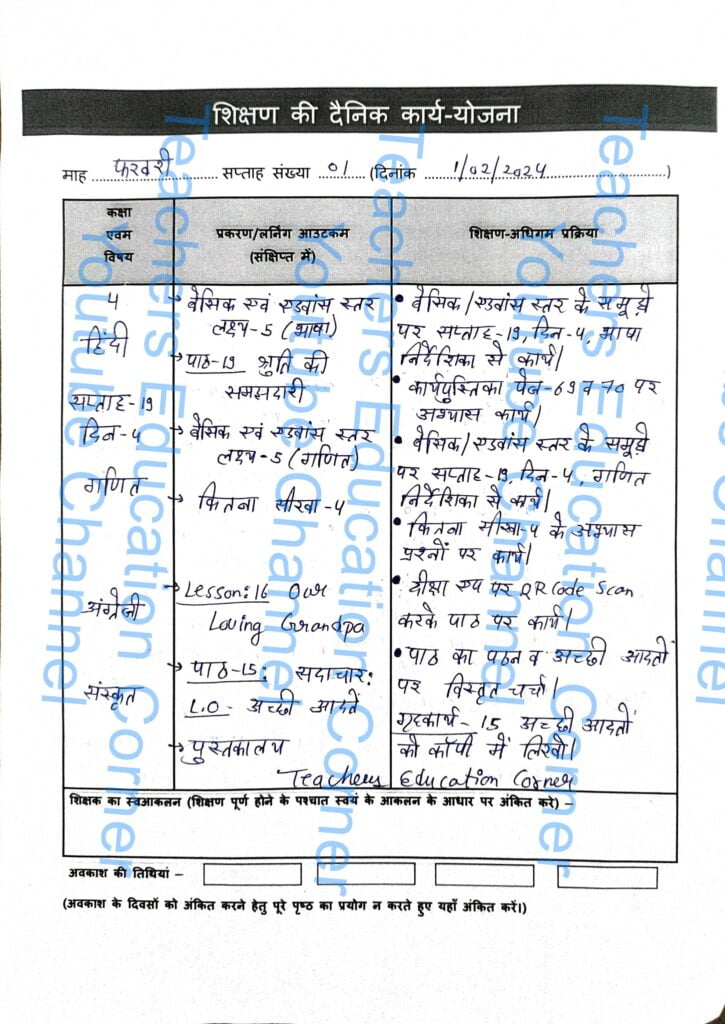 शिक्षण की दैनिक कार्य-योजना
माह फरवरी सप्ताह संख्या 01 (दिनांक 1/02/2024)
कक्षा
एवम
विषय
प्रकरण/लर्निंग आउटकम
(संक्षिप्त में)
शिक्षण-अधिगम प्रक्रिया
4
हिंदी
सप्ताह-19
दिन-4
गणित
अंग्रेजी
संस्कृत
→ बेसिक एवं एडवांस स्तर
लक्ष्य-5 (भाषा)
→ पाठ-19 श्रुति की
समझदारी
→ बेसिक एवं एडवांस स्तर
लक्ष्य-5 (गणित)
→ कितना सीखा-4
→ Lesson:16 Our
Loving Grandpa
→ पाठ-15: सदाचार:
L.O- अच्छी आदतें
→ पुस्तकालय
• बेसिक/एडवांस स्तर के समूहों
पर सप्ताह-19, दिन-4, भाषा
निर्देशिका से कार्य।
• कार्यपुस्तिका पेज-69 व 70 पर
अभ्यास कार्य।
• बेसिक/एडवांस स्तर के समूहों
पर सप्ताह-19, दिन-4, गणित
निर्देशिका से कार्य।
• कितना सीखा-4 के अभ्यास
प्रश्नों पर कार्य।
• दीक्षा एप पर QR Code Scan
करके पाठ पर कार्य।
• पाठ का पठन व अच्छी आदतों
पर विस्तृत चर्चा।
गृहकार्य- 15 अच्छी आदतों
को कॉपी में लिखो।
Teachers Education Corner
शिक्षक का स्वआकलन (शिक्षण पूर्ण होने के पश्चात स्वयं के आकलन के आधार पर अंकित करे) –
अवकाश की तिथियां –
(अवकाश के दिवसों को अंकित करने हेतु पूरे पृष्ठ का प्रयोग न करते हुए यहाँ अंकित करें।)
Teachers Education Corner
Youtube Channel
Teachers Education Corner
Youtube Channel
Teachers Education Corner